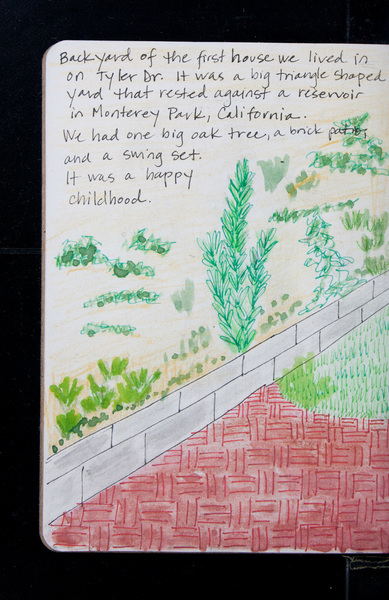 Backyard of the first house we lived in
on Tyler Dr. It was a big triangle shaped
yard that rested against a reservoir
in Monterey Park, California.
We had one big oak tree, a brick patio,
and a swing set.
It was a happy
childhood.